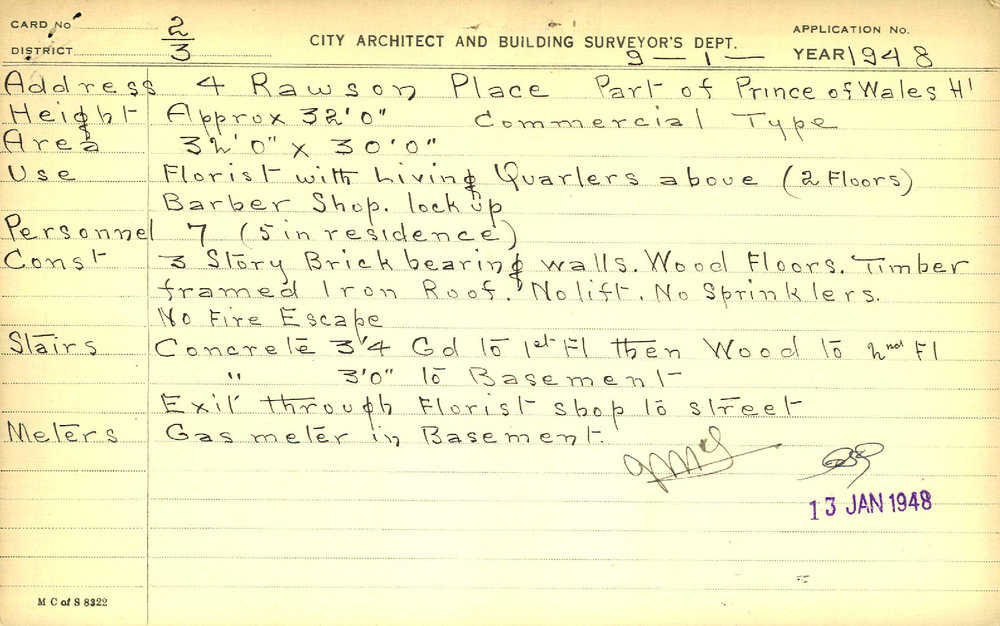 CARD No 2/3
DISTRICT
CITY ARCHITECT AND BUILDING SURVEYOR'S DEPT.
APPLICATION No.
9 - 1 - YEAR 1948
Address 4 Rawson Place Part of Prince of Wales Hl
Height Approx 32'0" Commercial Type
Area 32'0" x 30'0"
Use Florist with Living Quarters above (2 Floors)
Barber Shop. lock up
Personnel 7 (5 in residence)
Const 3 Story Brick bearing walls. Wood Floors. Timber
framed Iron Roof. No lift. No Sprinklers.
No Fire Escape
Stairs Concrete 3'4 Gd to 1st Fl then Wood to 2nd Fl
" 3'0" to Basement
Exit through Florist shop to street
Meters Gas meter in Basement.
13 JAN 1948
M C of S 8322